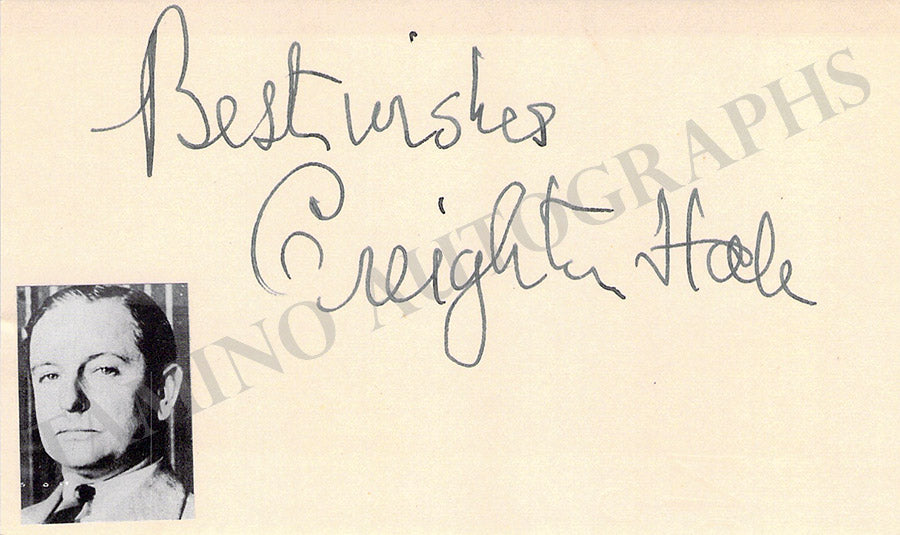 Best wishes
Creighton Hale
TAMINO AUTOGRAPHS